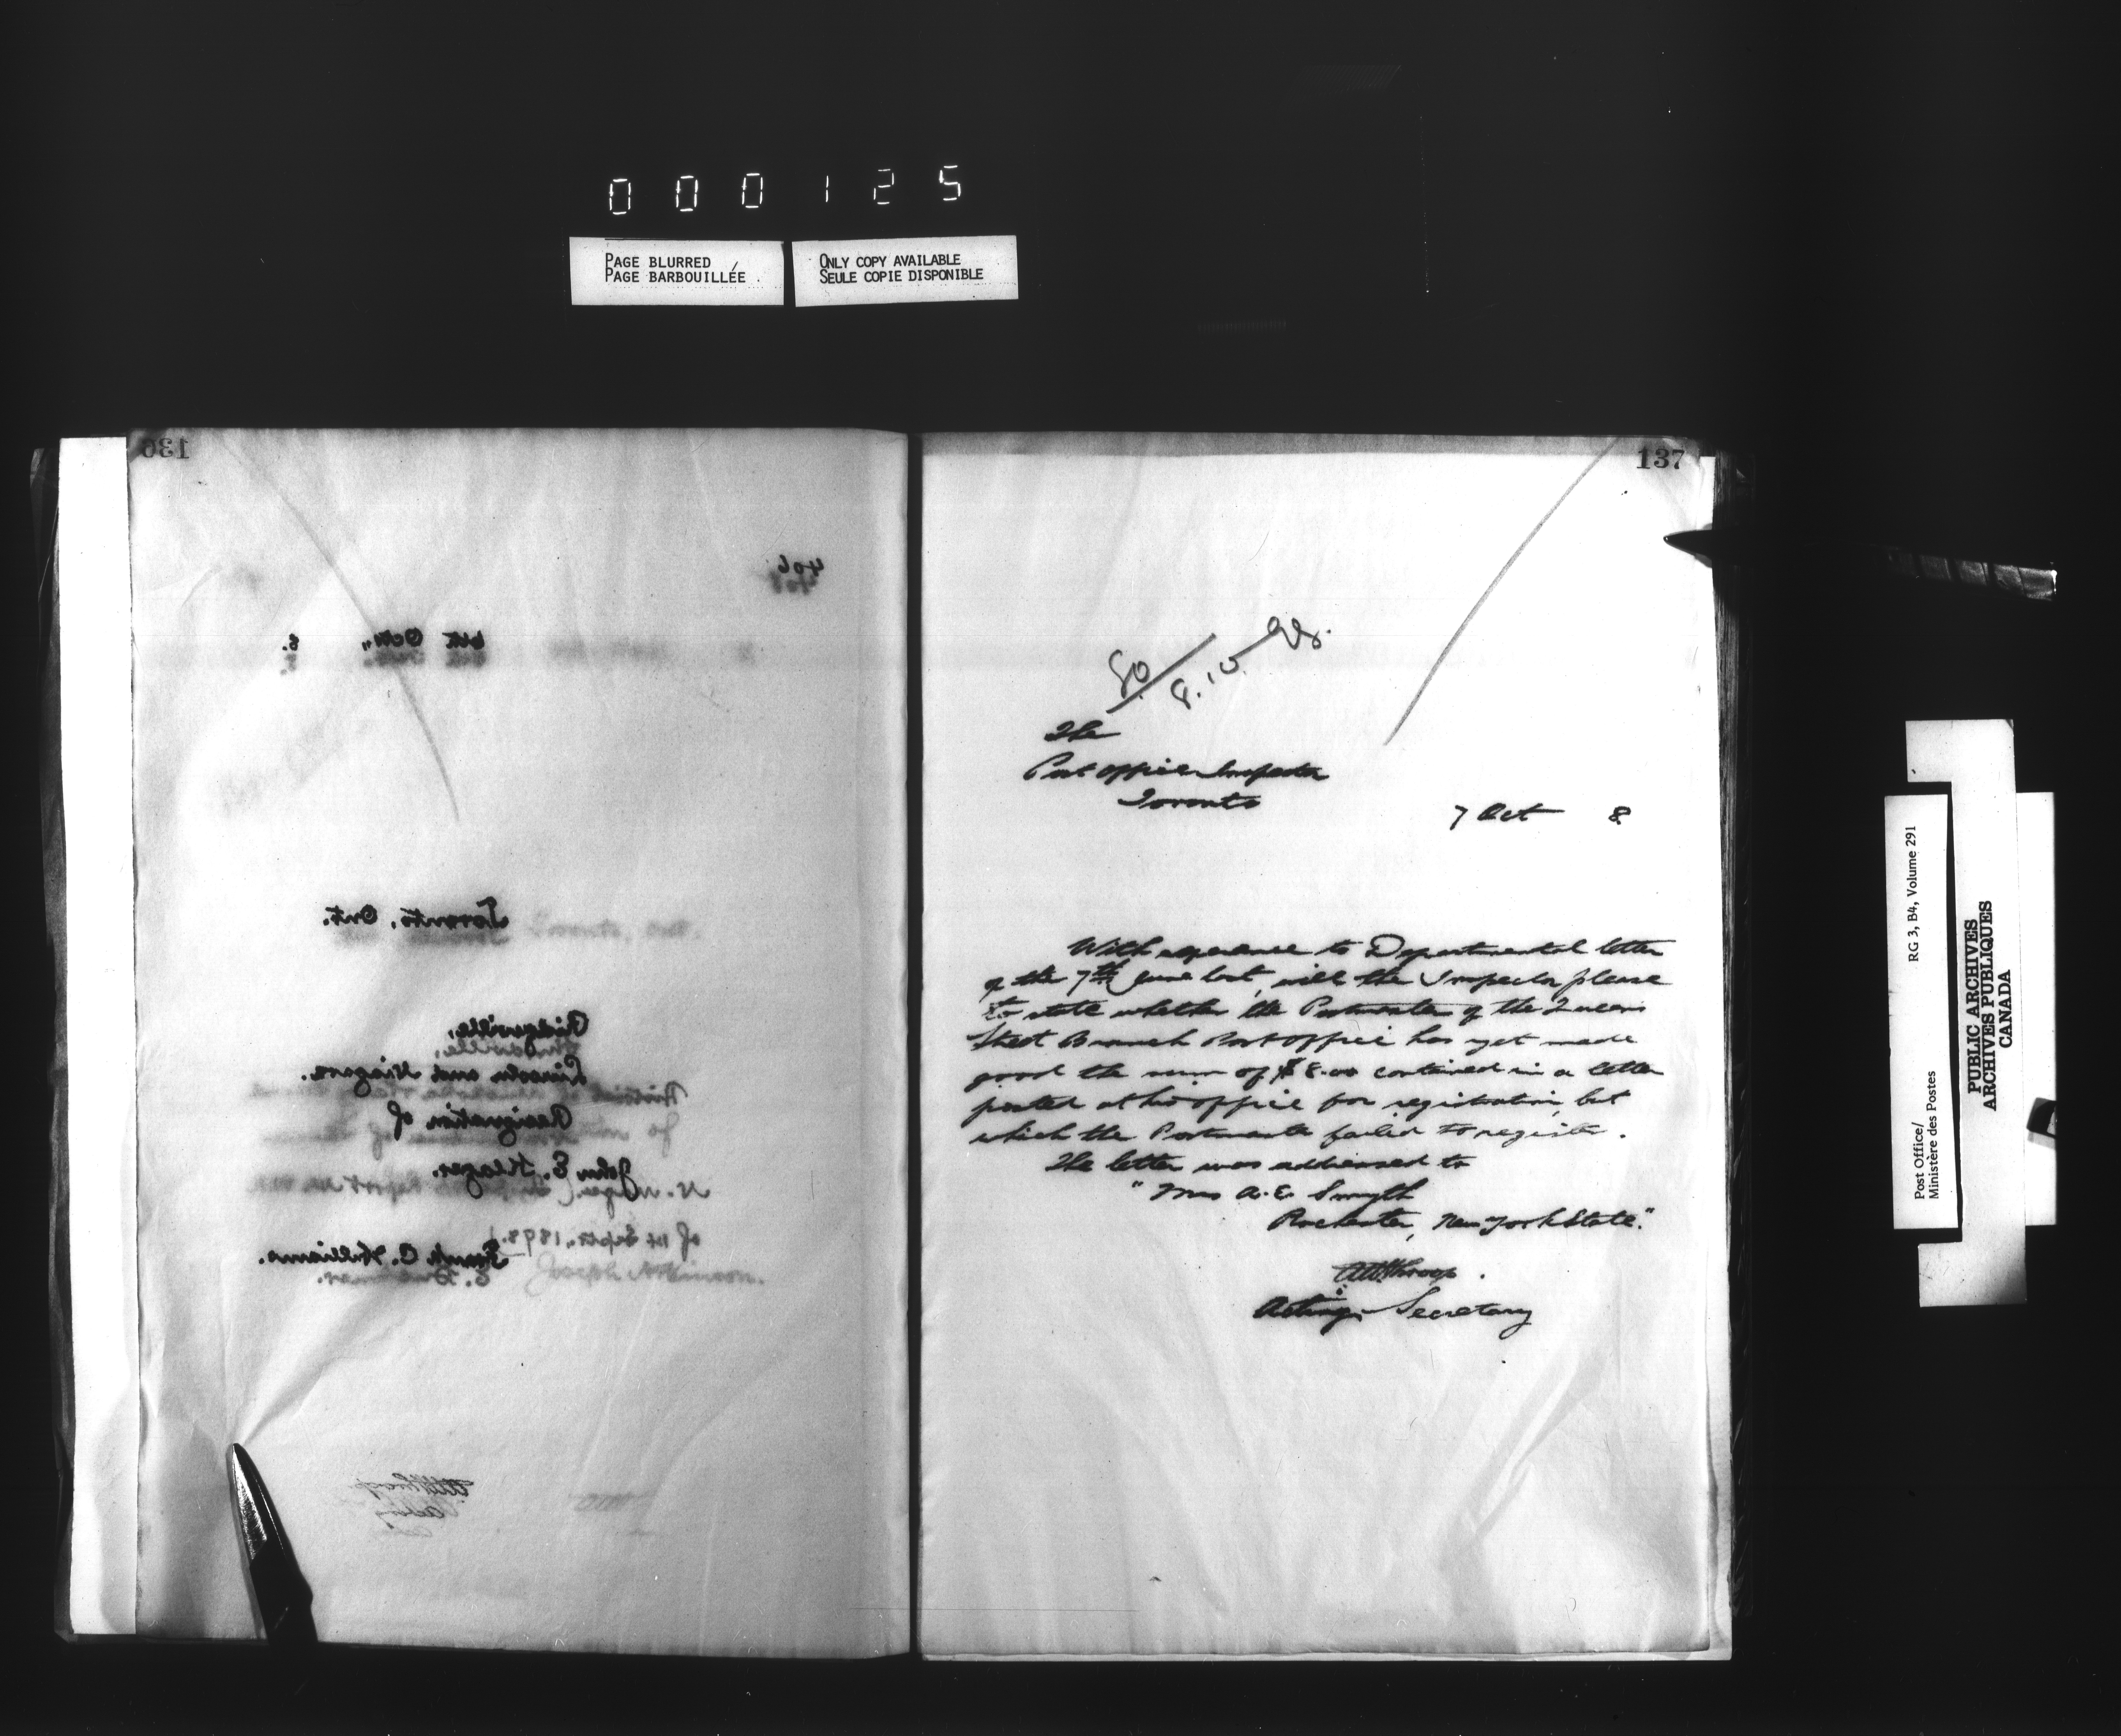 000125
PAGE BLURRED
PAGE BARBOUILLÉE
ONLY COPY AVAILABLE
SEULE COPIE DISPONIBLE
136
406
6th Oct., 8.
Toronto, Ont.
Ridgeville,
Lincoln and Niagara.
Resignation of
John E. Klager.
of 1st Septr., 1898.
Frank C. Williams.
Joseph Atkinson.
AWThroop
Acting
137
8.10.98.
The
Post Office Inspector
Toronto
7 Oct 8
With reference to Departmental letter
of the 7th June last, will the Inspector please
to state whether the Postmaster of the Queen
Street Branch Post Office has yet made
good the sum of $8.00 contained in a letter
posted at his office for registration, but
which the Postmaster failed to register.
The letter was addressed to
"Mrs A. E. Smyth
Rochester, New York State."
AWThroop.
Acting Secretary
Post Office/
Ministère des Postes
RG 3, B4, Volume 291
PUBLIC ARCHIVES
ARCHIVES PUBLIQUES
CANADA